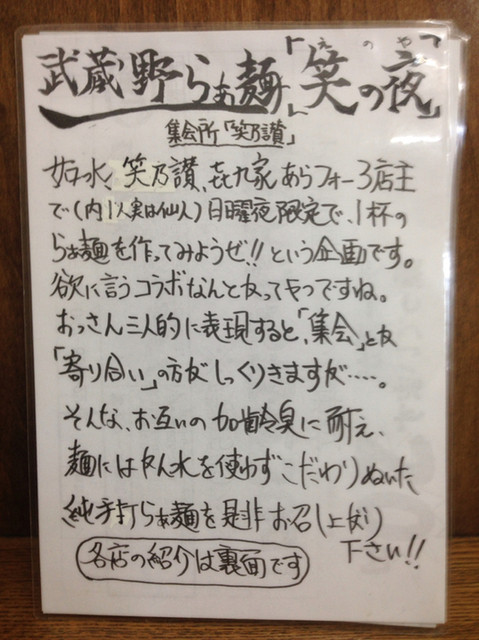 えのやて
武蔵野らぁ麺「笑の夜」
集会所「笑乃讃」
如水、笑乃讃、㐂九家 あらフォー3店主
で(内1人実は仙人)日曜夜限定で、1杯の
らぁ麺を作ってみようぜ!!という企画です。
欲に言うコラボなんと友ってヤツですね。
おっさん三人的に表現すると、「集会」と友
「寄り合い」の方がしっくりきますが……。
そんな、お互いの加齢臭に耐え、
麺にはかん水を使わずこだわりぬいた
純手打らぁ麺を是非お召し上がり
下さい!!
各店の紹介は裏面です